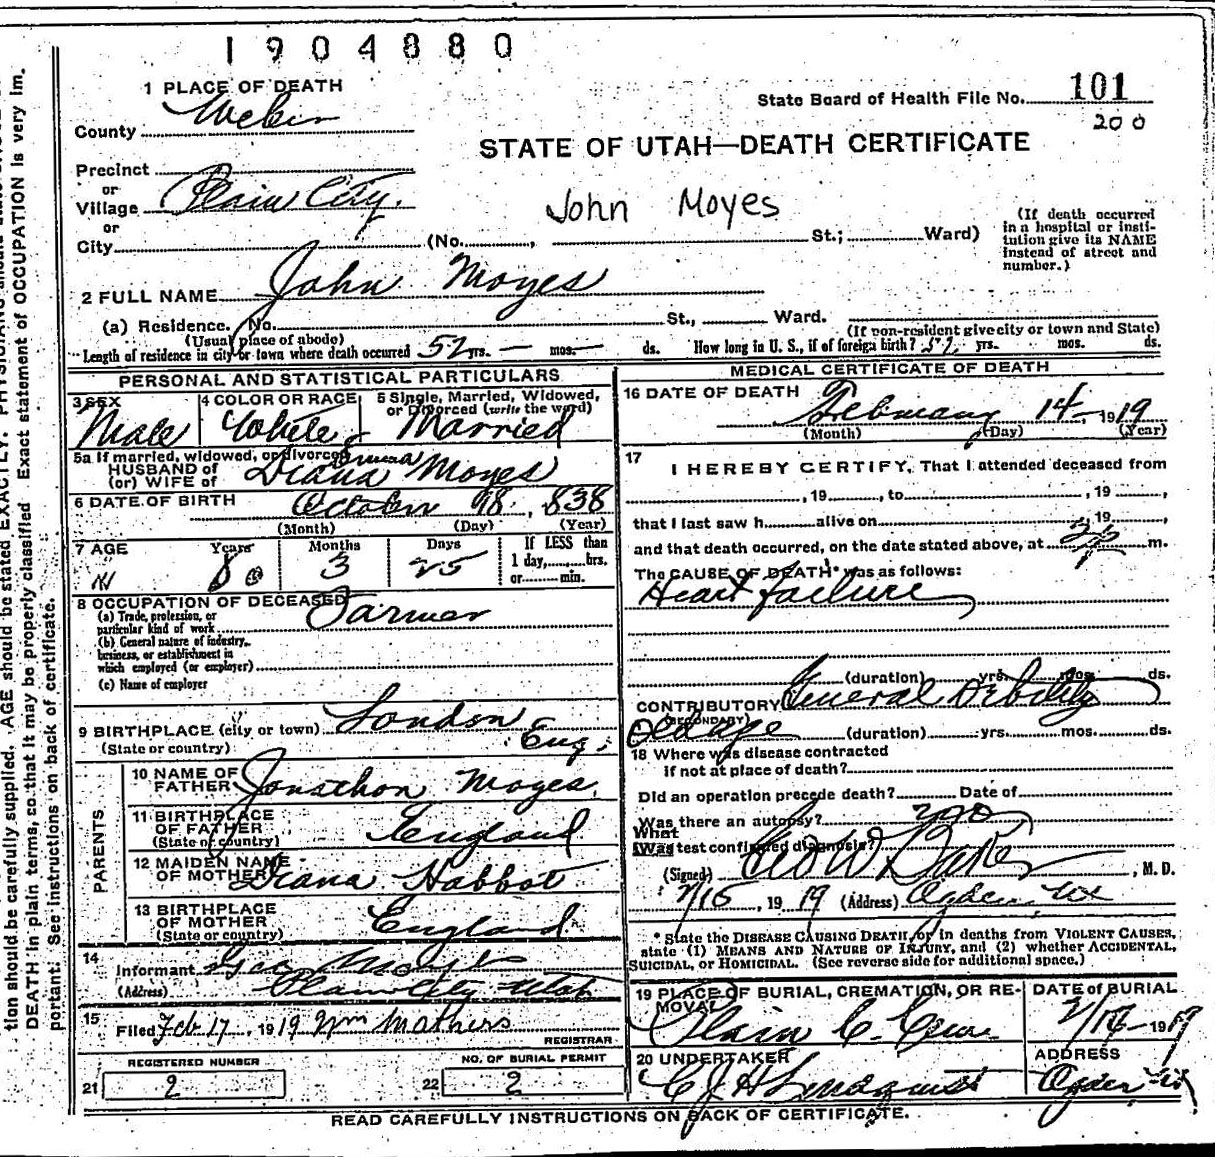 1904880
1 PLACE OF DEATH
County Weber
State Board of Health File No. 101
200
STATE OF UTAH—DEATH CERTIFICATE
Precinct
or
Village Plain City.
John Moyes
or
City (No. , St.; Ward)
(If death occurred
in a hospital or insti-
tution give its NAME
instead of street and
number.)
2 FULL NAME John Moyes
(a) Residence. No. St., Ward.
(Usual place of abode) (If non-resident give city or town and State)
Length of residence in city or town where death occurred 52 yrs. — mos. — ds. How long in U. S., if of foreign birth? 52 yrs. mos. ds.
PERSONAL AND STATISTICAL PARTICULARS
3 SEX
Male
4 COLOR OR RACE
White
5 Single, Married, Widowed,
or Divorced (write the word)
Married
5a If married, widowed, or divorced
HUSBAND of
(or) WIFE of Diana Moyes
6 DATE OF BIRTH October 18, 838
(Month) (Day) (Year)
7 AGE Years Months Days If LESS than
80 3 25 1 day, hrs.
or min.
8 OCCUPATION OF DECEASED Farmer
(a) Trade, profession, or
particular kind of work
(b) General nature of industry,
business, or establishment in
which employed (or employer)
(c) Name of employer
9 BIRTHPLACE (city or town) London
(State or country) Eng.
PARENTS
10 NAME OF
FATHER Jonathon Moyes.
11 BIRTHPLACE
OF FATHER
(State or country) England
12 MAIDEN NAME
OF MOTHER Diana Habbot
13 BIRTHPLACE
OF MOTHER
(State or country) England
14
Informant Geo Moyes
(Address) Plain City Utah
15
Filed Feb 17, 1919 Wm Mathers
REGISTRAR
REGISTERED NUMBER
21 2
NO. OF BURIAL PERMIT
22 2
MEDICAL CERTIFICATE OF DEATH
16 DATE OF DEATH February 14 - 1919
(Month) (Day) (Year)
17
I HEREBY CERTIFY, That I attended deceased from
, 19 , to , 19 ,
that I last saw h alive on , 19 ,
and that death occurred, on the date stated above, at m.
The CAUSE OF DEATH* was as follows:
Heart failure
(duration) yrs. mos. ds.
CONTRIBUTORY General Debility
(SECONDARY)
Old age (duration) yrs. mos. ds.
18 Where was disease contracted
if not at place of death?
Did an operation precede death? Date of
Was there an autopsy? no
What
(Was test confirmed diagnosis?
(Signed) Geo W Baker, M. D.
2/15, 1919 (Address) Ogden, Ut
* State the DISEASE CAUSING DEATH, or in deaths from VIOLENT CAUSES,
state (1) MEANS AND NATURE OF INJURY, and (2) whether ACCIDENTAL,
SUICIDAL, or HOMICIDAL. (See reverse side for additional space.)
19 PLACE OF BURIAL, CREMATION, OR RE-
MOVAL
Plain C. Cem.
DATE of BURIAL
1919
20 UNDERTAKER
C J A Lindquist
ADDRESS
Ogden Ut
READ CAREFULLY INSTRUCTIONS ON BACK OF CERTIFICATE.
tion should be carefully supplied. AGE should be stated EXACTLY. PHYSICIANS
DEATH in plain terms, so that it may be properly classified. Exact statement of OCCUPATION is very im-
portant. See instructions on back of certificate.